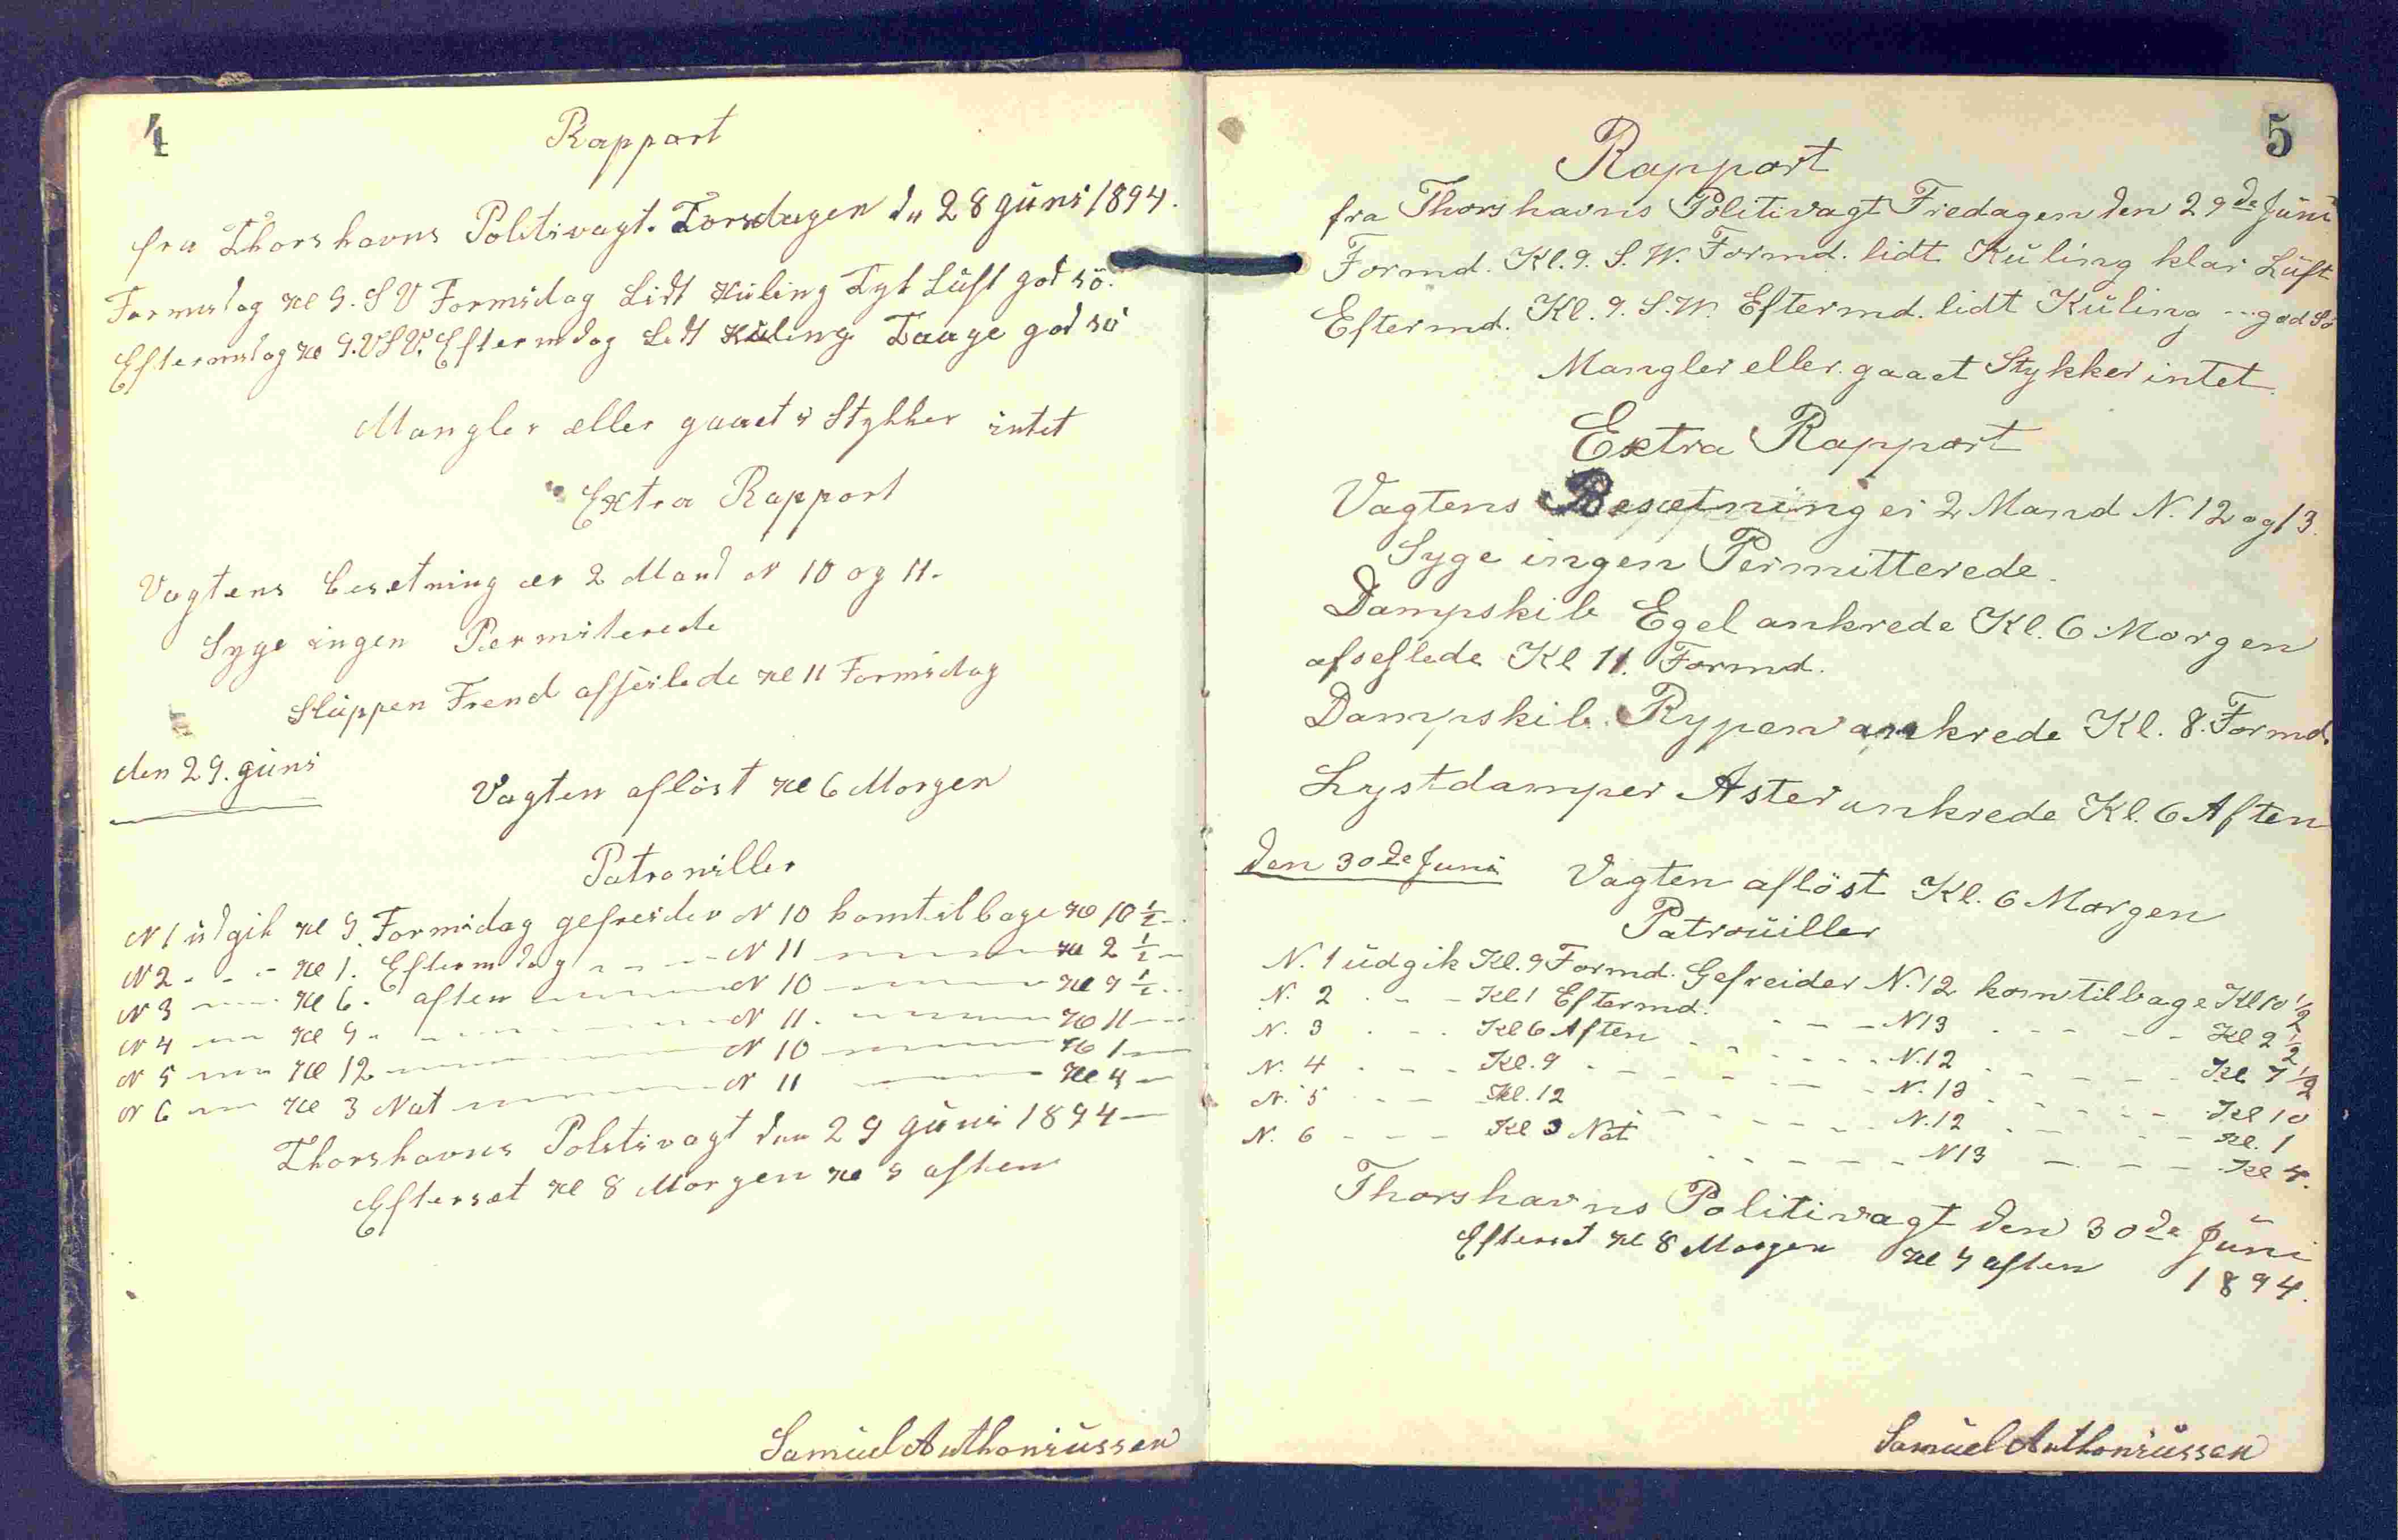 4
Rapport
fra Thorshavns Politivagt. Torsdagen dn 28 güni 1894.
Formidag Kl 9. S V Formidag Lidt Küling Tyk Lüft god sö.
Eftermidag Kl 9. VSV. Eftermdag Lidt Küling Taage god sö
Mangler æller gaaet i Stykker intet
Extra Rapport
Vagtens besetning ær 2 Mand N 10 og 11.
Syge ingen Permiterede
Slüppen Frend afseilede Kl 11 Formidag
den 29. güni
Vagten aflöst Kl 6 Morgen
Patroniller
N 1 üdgik Kl 9. Formidag gefreider N 10 komtilbage Kl 10 1/2
N 2 - - - Kl 1. Eftermdag - - - - N 11 - - - - Kl 2 1/2
N 3 - - - Kl 6. aften - - - - N 10 - - - - Kl 7 1/2
N 4 - - - Kl 9 - - - - N 11. - - - - Kl 11
N 5 - - - Kl 12 - - - - N 10 - - - - Kl 1
N 6 - - - Kl 3 Nat - - - - N 11 - - - - Kl 4
Thorshavns Politivagt den 29 güni 1894
Eftersæt Kl 8 Morgen Kl 9 aften
Samüel Anthoniüssen
5
Rapport
fra Thorshavns Politivagt Fredagen den 29de Jüni
Formd. Kl. 9. S. W. Formd. lidt Küling klar Lüft
Eftermd. Kl. 9. S. W. Eftermd. lidt Küling - - god Sö
Mangler eller gaaet Stykker intet.
Extra Rapport
Vagtens Besætning er 2 Mand N. 12 og 13.
Syge ingen Permitterede.
Dampskib Egel ankrede Kl. 6 Morgen
afseflede Kl 11. Formd.
Dampskib. Rypen ankrede Kl. 8. Formd.
Lystdamper Aster ankrede Kl. 6 Aften
den 30de Juni Vagten aflöst Kl. 6 Morgen
Patroüiller
N. 1 üdgik Kl. 9 Formd. Gefreider N. 12 komtilbage Kl 10 1/2
N. 2 - - - Kl 1 Eftermd. - - - N 13 - - - - Kl 2 1/2
N. 3 - - - Kl 6 Aften - - - - N. 12 - - - - Kl. 7 1/2
N. 4 - - - Kl. 9 - - - - N. 13 - - - - Kl 10
N. 5 - - - Kl. 12 - - - - N. 12 - - - - Kl. 1
N. 6 - - - Kl 3 Nat - - - - N 13 - - - - Kl 4.
Thorshavns Politivagt den 30de Jüni
Eftersæt Kl 8 Morgen Kl 9 aften 1894.
Samüel Anthoniüssen